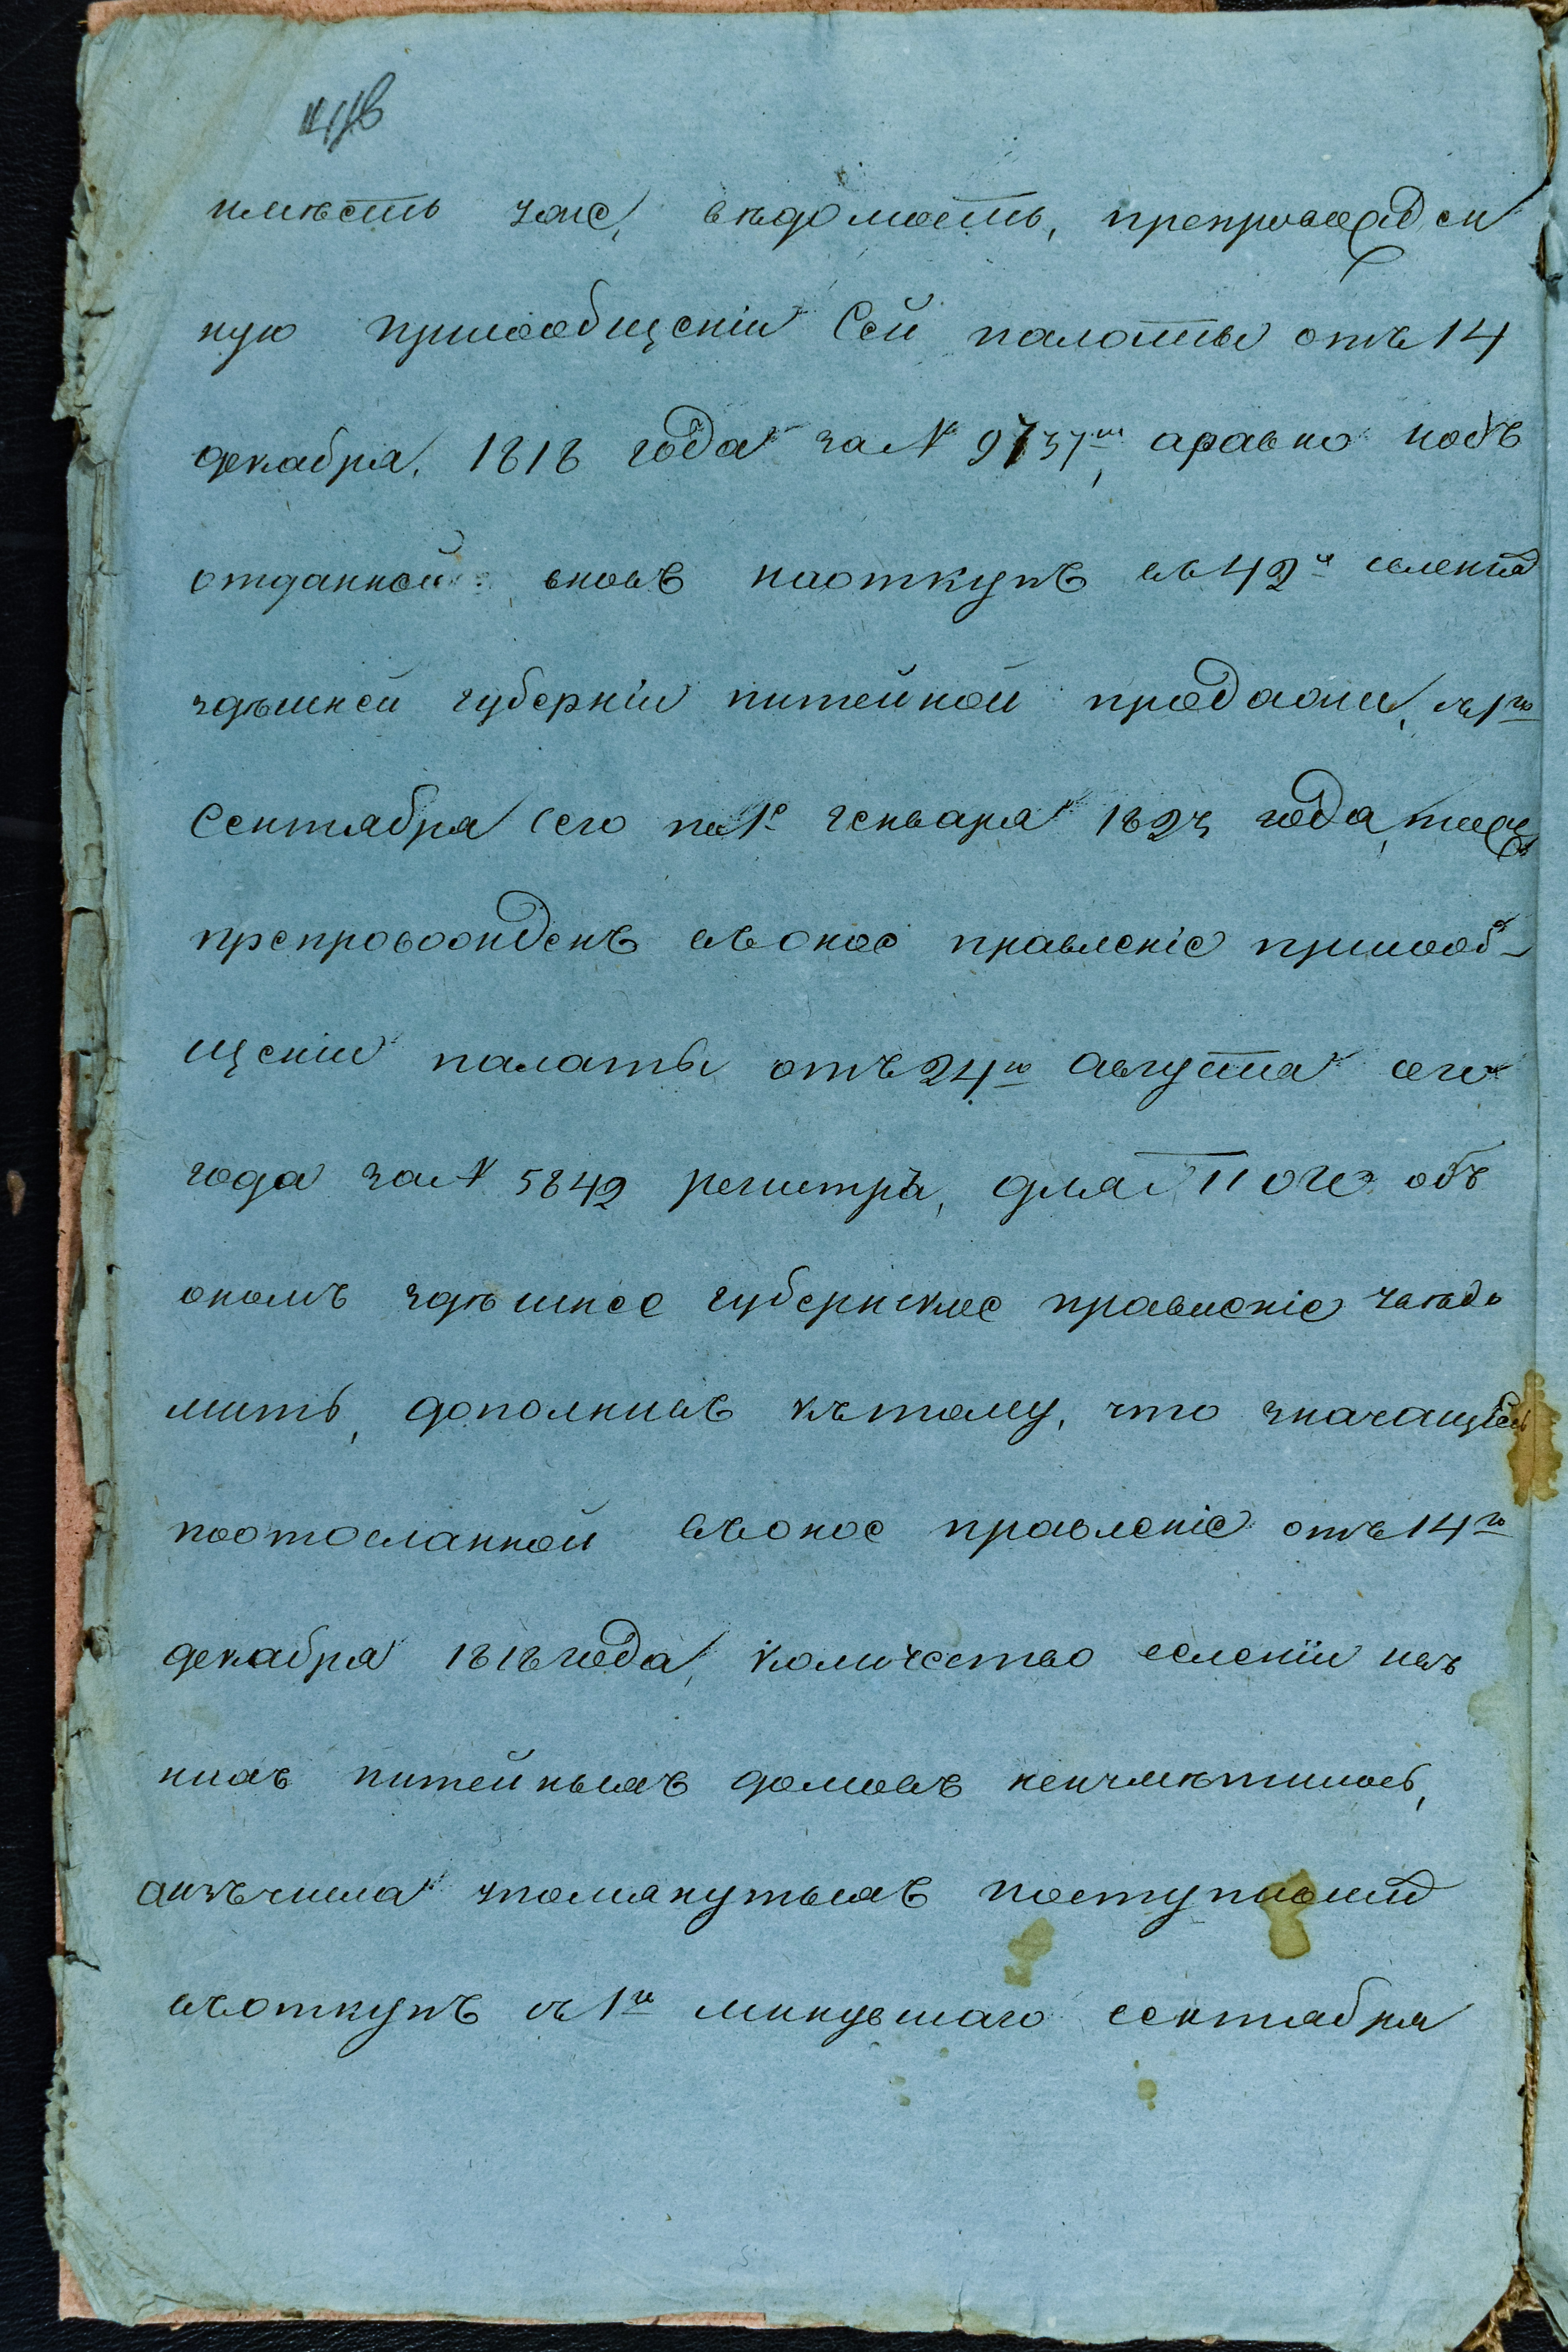 имѣетъ уже, вѣдомость, препровожден
ную присообщеніи сей палаты отъ 14
декабря, 1818 года за № 9737ᵐ, аравно нобъ
отданной вновь наоткупъ въ 42ˣ селеніяхъ
здѣшней губерніи питейной продажи, съ 1го
Сентября сего по 1е генваря 1823 года,
препровожденъ въоное правленіе присооб-
щеніи палаты отъ 24го августа сего
года за № 5842 регистръ, для того объ
ономъ здѣшнее губернское правленіе увѣдо
мить, дополнивъ къ тому, что значащееся
поотосланной въоное правленіе отъ 14го
декабря 1818 года, количество селеніи изъ
нихъ питейныхъ домовъ неизмѣнилось,
аизъчисла упомянутыхъ поступившихъ
въоткупъ съ 1го минувшаго сентября